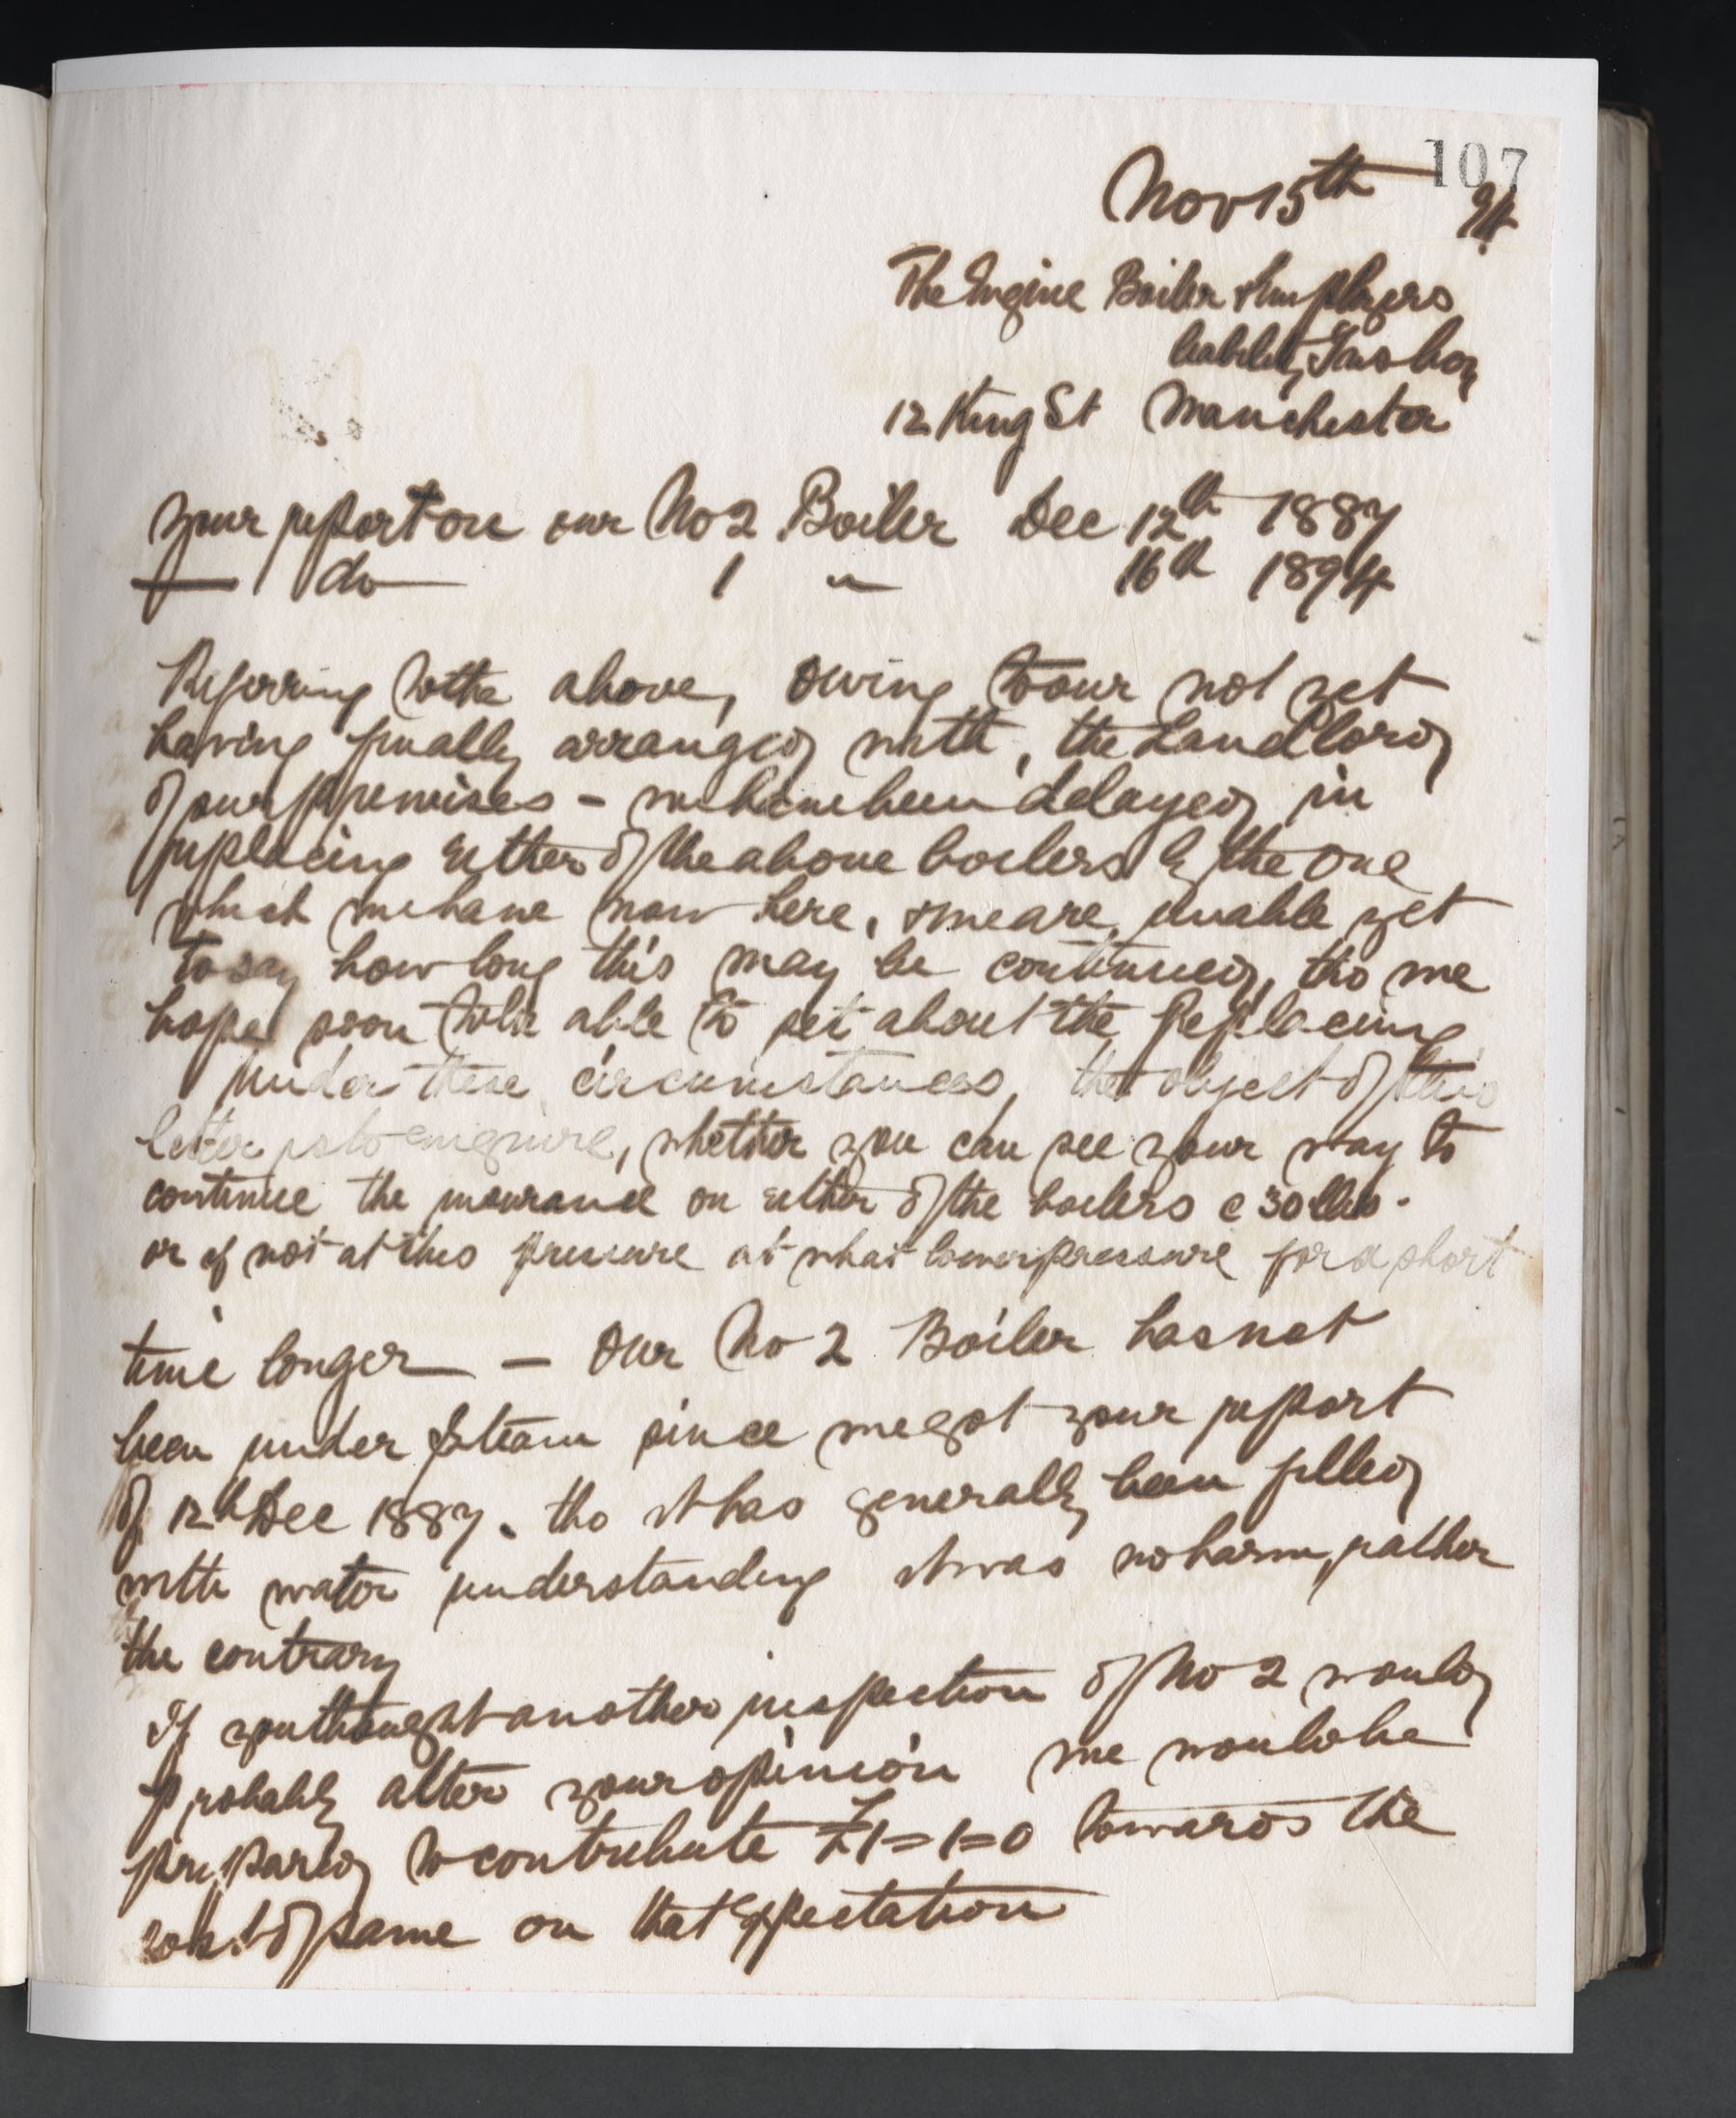 107
Nov 15th 94
The Engine Boiler & Employers
Liability Insce Coy
12 King St Manchester
your report on our No 2 Boiler Dec 12th 1887
do 1 " 16th 1894
Referring to the above, owing to our not yet
having finally arranged with, the Landlord
of our premises - we have been delayed in
replacing either of the above boilers by the one
which we have now here, & we are unable yet
to say how long this may be continued, tho we
hope soon to be able to set about the Replacing
under these circumstances, the object of this
letter is to enquire, whether you can see your way to
continue the insurance on either of the boilers @ 30 lbs.
or if not at this pressure at what lower pressure for a short
time longer - Our No 2 Boiler has not
been under steam since we got your report
of 12th Dec 1887. tho it has generally been filled
with water understanding it was no harm, rather
the contrary
If you thought another inspection of No 2 would
probably alter your opinion we would be
prepared to contribute £1=1=0 towards the
cost of same on that expectation